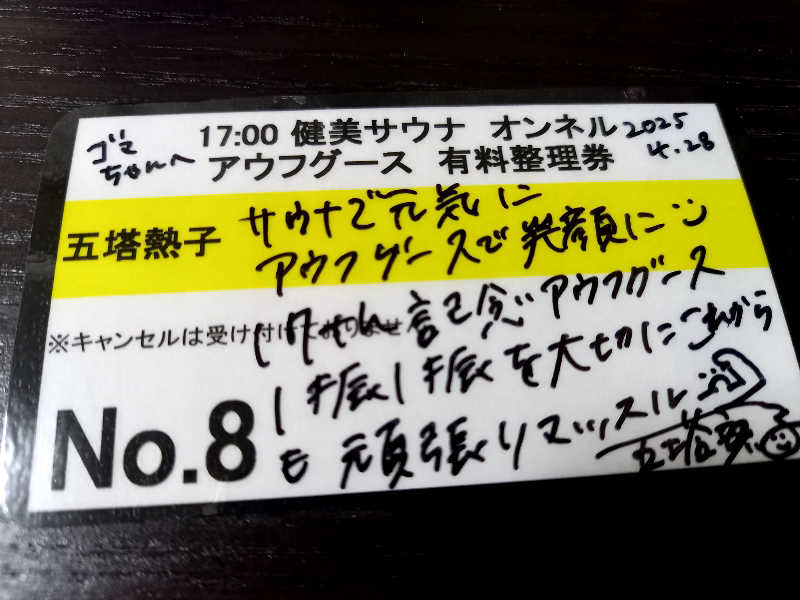 ゴマ
ちゃんへ
17:00 健美サウナ オンネル
2025
4.28
アウフグース 有料整理券
五塔熱子
サウナで元気に
アウフグースで笑顔に
※キャンセルは受け付けておりませ
記念アウフグース
1振1振を大切にこれから
も頑張りマッスル
No.8
五塔熱